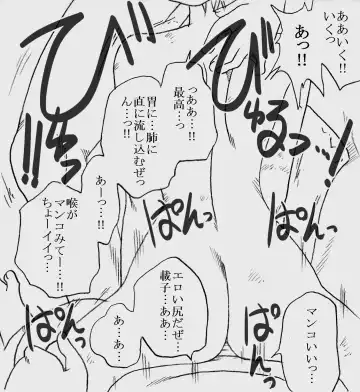 ああいく!!
いくっ
あっ!!
びゅるっ…!!
びゅ!!
っああ…!!
最高…っ
胃に…肺に
直に流し込むぜっ
ん…っ!!
あーっ…!!
喉が
マンコみてー…!!
ちょーイイっ…
ぱんっ
ぱんっ
マンコいいっ…
ぱんっ
エロい尻だぜ…
載子…ああ…
あ…あ…
ぱんっ